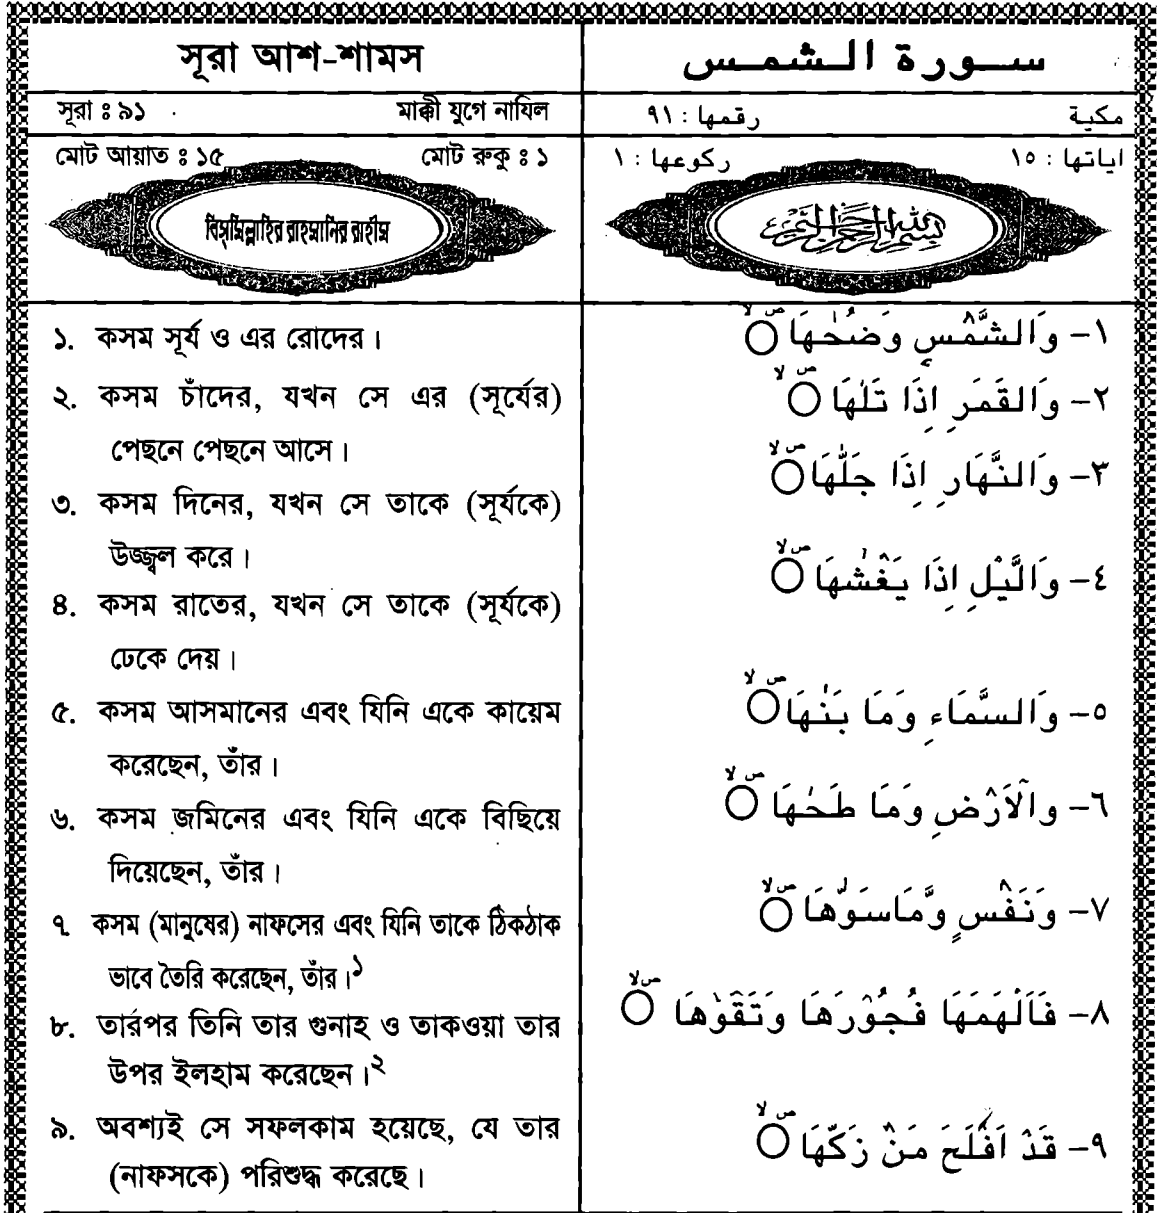 সূরা আশ-শামস
সূরা ঃ ৯১ মাক্কী যুগে নাযিল
মোট আয়াত ঃ ১৫ মোট রুকু ঃ ১
বিস্‌মিল্লাহির রাহমানির রাহীম
১. কসম সূর্য ও এর রোদের।
২. কসম চাঁদের, যখন সে এর (সূর্যের)
পেছনে পেছনে আসে।
৩. কসম দিনের, যখন সে তাকে (সূর্যকে)
উজ্জ্বল করে।
৪. কসম রাতের, যখন সে তাকে (সূর্যকে)
ঢেকে দেয়।
৫. কসম আসমানের এবং যিনি একে কায়েম
করেছেন, তাঁর।
৬. কসম জমিনের এবং যিনি একে বিছিয়ে
দিয়েছেন, তাঁর।
৭ কসম (মানুষের) নাফসের এবং যিনি তাকে ঠিকঠাক
ভাবে তৈরি করেছেন, তাঁর।১
৮. তারপর তিনি তার গুনাহ ও তাকওয়া তার
উপর ইলহাম করেছেন।২
৯. অবশ্যই সে সফলকাম হয়েছে, যে তার
(নাফসকে) পরিশুদ্ধ করেছে।
سورة الشمس
مكية رقمها : ٩١
اياتها : ١٥ ركوعها : ١
بسم الله الرحمن الرحيم
١- وَالشَّمْسِ وَضُحٰهَا
٢- وَالقَمَرِ اِذَا تَلٰهَا
٣- وَالنَّهَارِ اِذَا جَلّٰهَا
٤- وَالَّيْلِ اِذَا يَغْشٰهَا
٥- وَالسَّمَاءِ وَمَا بَنٰهَا
٦- وَالْاَرْضِ وَمَا طَحٰهَا
٧- وَنَفْسٍ وَّمَاسَوّٰهَا
٨- فَاَلْهَمَهَا فُجُوْرَهَا وَتَقْوٰهَا
٩- قَدْ اَفْلَحَ مَنْ زَكّٰهَا